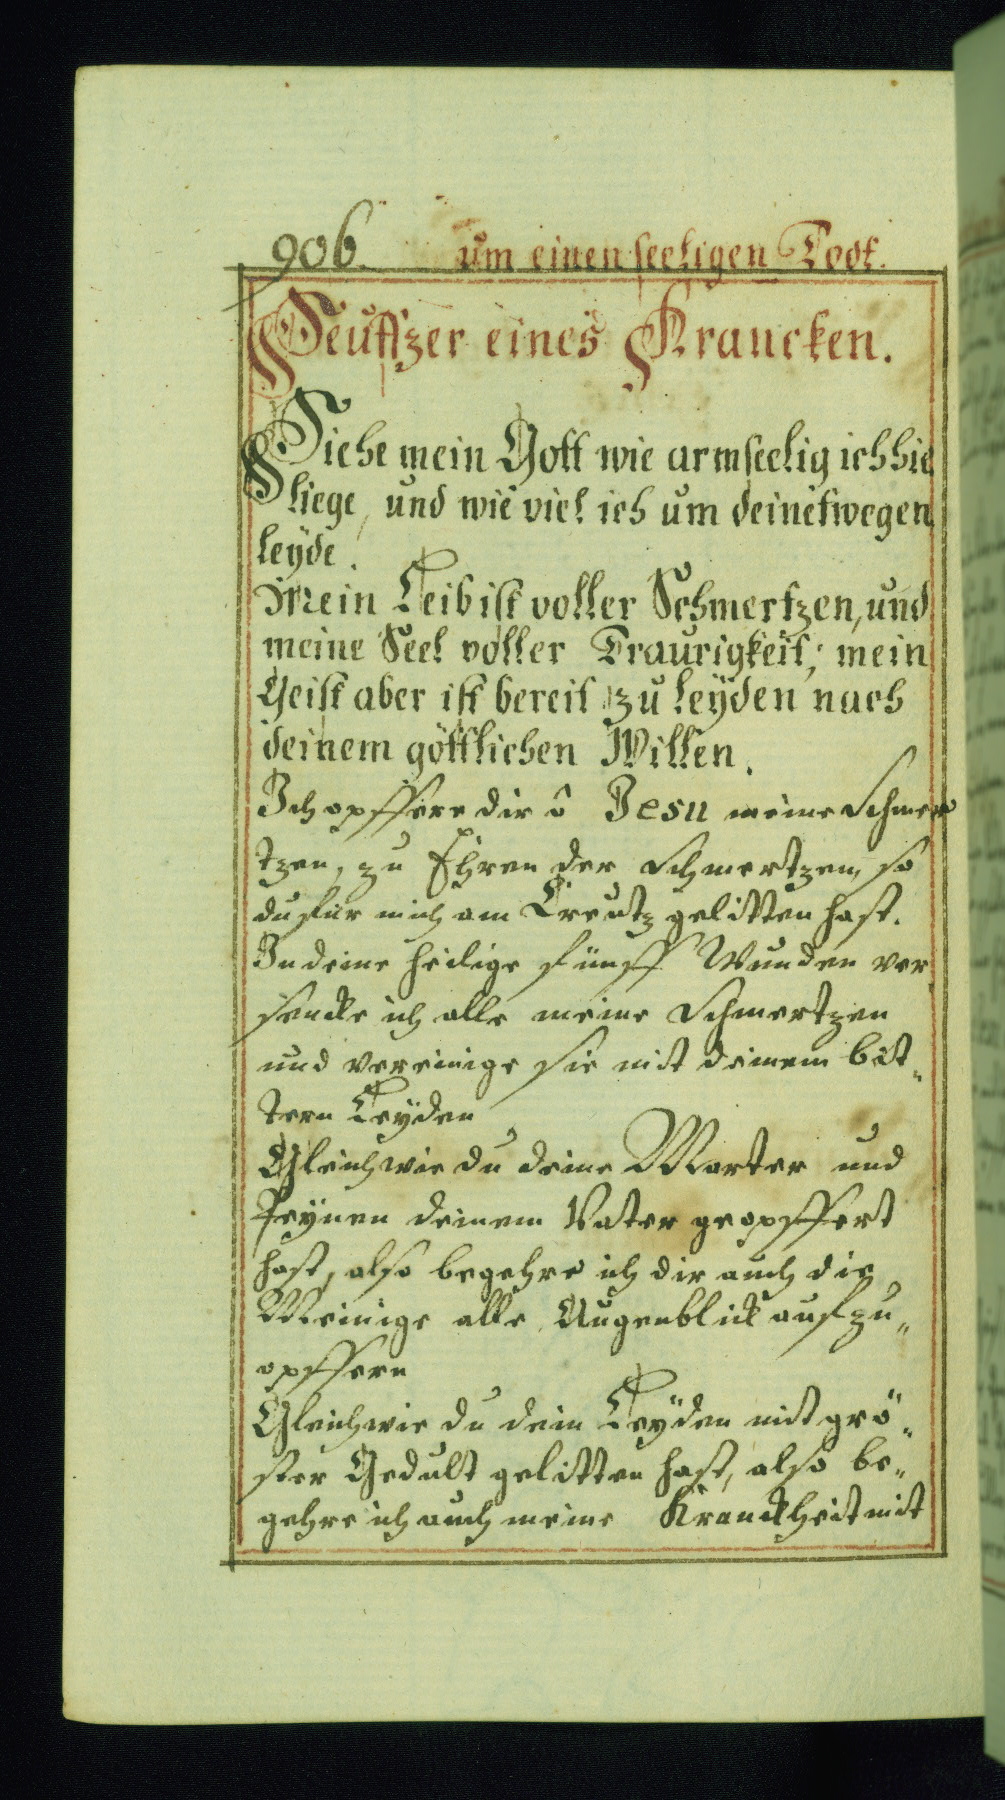 906. um einen seeligen Todt.
Seufftzer eines Krancken.
Siehe mein Gott wie armseelig ich hie
liege, und wie viel ich um deinetwegen
leyde.
Mein Leib ist voller Schmertzen, und
meine Seel voller Traurigkeit; mein
Geist aber ist bereit zu leyden nach
deinem göttlichen Willen.
Ich opffere dir ô Jesu meine Schmer
tzen, zu Ehren der Schmertzen, so
du für mich am Creutz gelitten hast.
In deine heilige fünff Wunden ver
sencke ich alle meine Schmertzen
und vereinige sie mit deinem bit„
tern Leyden
Gleichwie du deine Marter und
Peynen deinem Vater geopffert
hast, also begehre ich dir auch die
Meinige alle Augenblick aufzu„
opffern
Gleichwie du dein Leyden mit grö„
ster Gedult gelitten hast, also be„
gehre ich auch meine Kranckheit mit